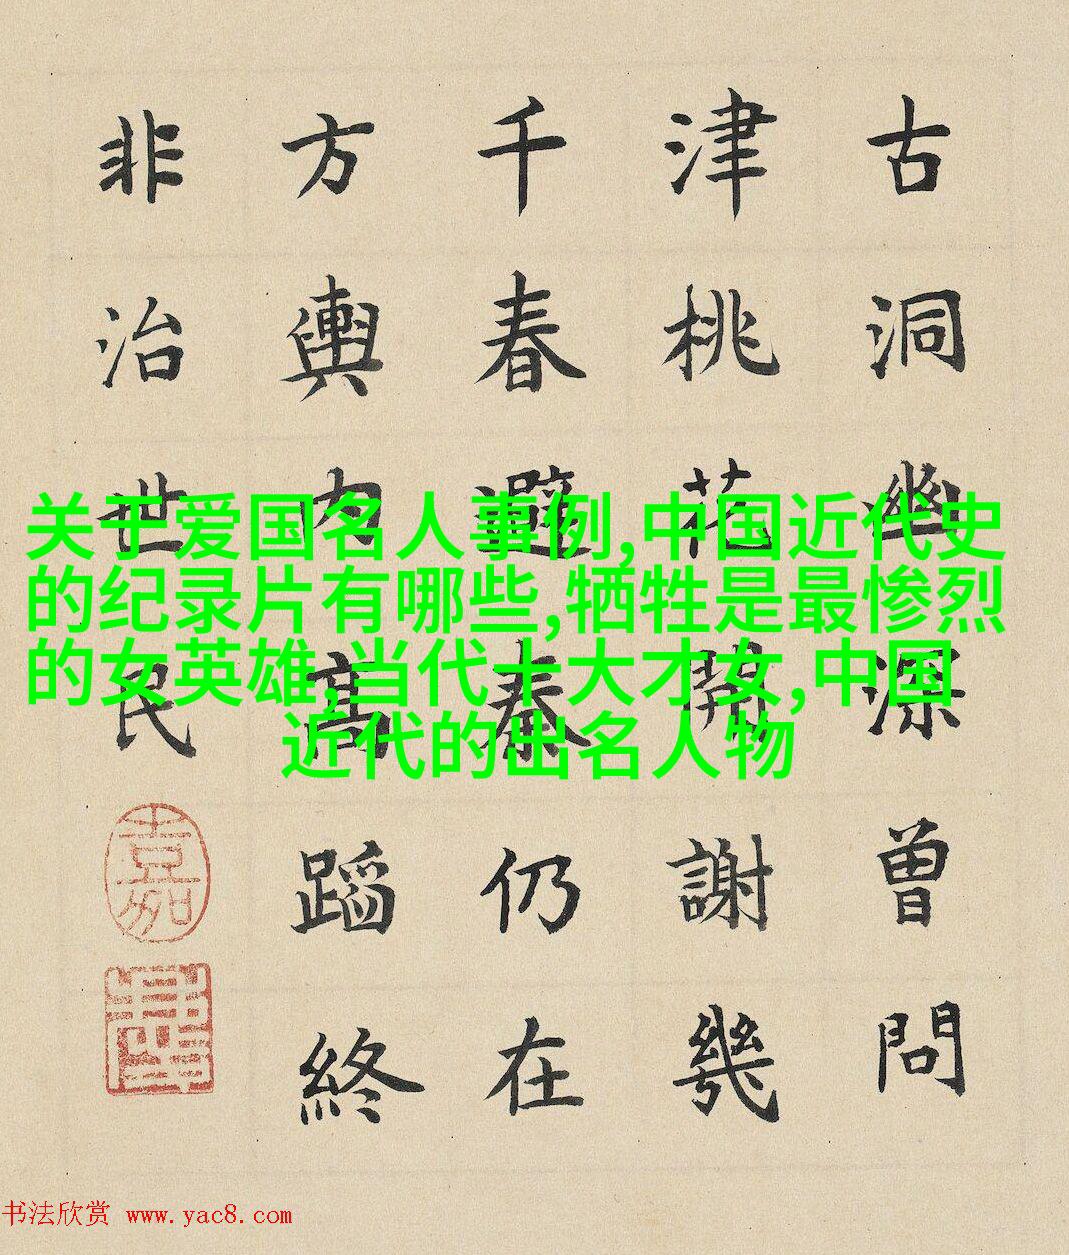 古洞幽深曾問
津桃花開謝幾
千春避秦仍在
方輿內高蹈終
非治世民
关于爱国名人事例,中国近代史
的纪录片有哪些,牺牲是最惨烈
的女英雄,当代十大才女,中国
近代的出名人物
书法欣赏 www.yac8.com